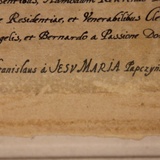 e Residentiae, et Venerabilibus Cle
gelis, et Bernardo a Passione Do
tanislaus à JESU MARIA Papczyń